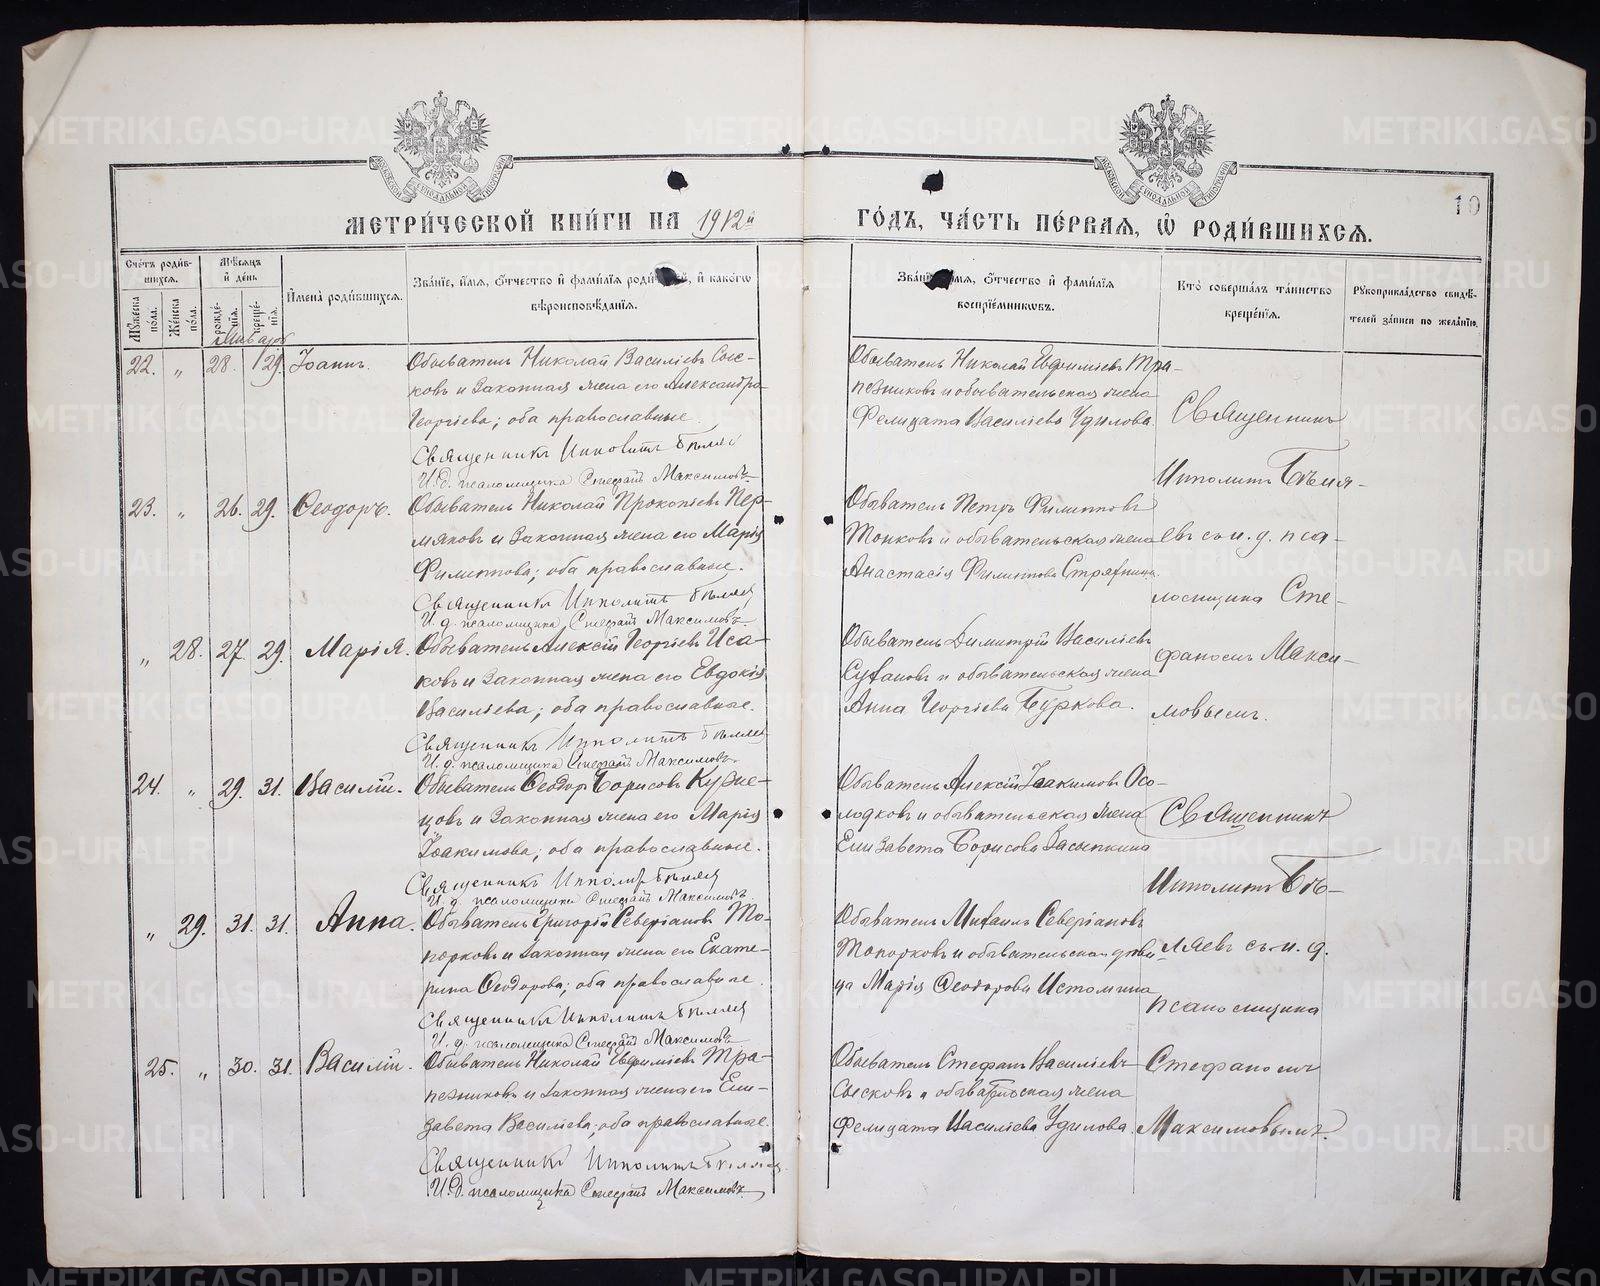 10
МЕТРИ́ЧЕСКОЙ КНИ́ГИ НА 1912й ГО́ДЪ, ЧА́СТЬ ПЕ́РВАЯ, Ѡ҆ РОДИ́ВШИХСЯ.
Сче́тъ роди́в-
шихся.
Му́жеска по́ла.
Же́нска по́ла.
Мѣ́сяцъ
и҆ де́нь
рожде́-
нїя.
креще́-
нїя.
Январь
И҆мена̀ роди́вшихся.
Зва́нїе, и҆́мя, ѻ҆́тчество и҆ фами́лїя , и҆ како́гѡ
вѣроисповѣ́данїя.
ѻ҆́тчество и҆ фами́лїя
воспрїе́мникѡвъ.
Кто̀ соверша́лъ та́инство
креще́нїя.
Рꙋкоприкла́дство свидѣ́-
телей за́писи по жела́нїю.
22. „ 28. 29. Іоаннъ.
Обыватель Николай Василіевъ Сыс-
ковъ и законная жена его Александра
Георгіева; оба православные.
Священникъ Ипполитъ Бѣляев
И. д. псаломщика Стефанъ Максимовъ.
Обыватель Николай Евфиміевъ Тра-
пезниковъ и обывательская жена
Фелицата Василіева Удилова.
Священникъ
Ипполитъ Бѣля-
23. „ 26. 29. Ѳеодоръ.
Обыватель Николай Прокопіевъ Пер-
мяковъ и законная жена его Марія
Филиппова; оба православные.
Священникъ Ипполитъ Бѣляев
И. д. псаломщика Стефанъ Максимовъ.
Обыватель Петръ Филипповъ
Топковъ и обывательская жена
Анастасія Филиппова Стряпнина.
евъ съ и. д. пса-
ломщика Сте-
„ 28. 27. 29. Марія.
Обыватель Алексій Георгіевъ Иса-
ковъ и законная жена его Евдокія
Василіева; оба православные.
Священникъ Ипполитъ Бѣляев
И. д. псаломщика Стефанъ Максимовъ.
Обыватель Димитрій Василіевъ
Сухановъ и обывательская жена
Анна Георгіева Буркова.
фаномъ Макси-
мовымъ.
24. „ 29. 31. Василій.
Обыватель Ѳеодоръ Борисовъ Кузне-
цовъ и законная жена его Марія
Іоакимова; оба православные.
Священникъ Ипполитъ Бѣляев
И. д. псаломщика Стефанъ Максимовъ.
Обыватель Алексій Іоакимовъ Осо-
лодковъ и обывательская жена
Елизавета Борисова Засыпкина
Священникъ
Ипполитъ Бѣ-
„ 29. 31. 31. Анна.
Обыватель Григорій Северіановъ То-
порковъ и законная жена его Екате-
рина Ѳеодорова; оба православные.
Священникъ Ипполитъ Бѣляев
И. д. псаломщика Стефанъ Максимовъ
Обыватель Михаилъ Северіановъ
Топорковъ и обывательская дѣви-
ца Марія Ѳеодорова Истомина
ляевъ съ и. д.
псаломщика
25. „ 30. 31. Василій.
Обыватель Николай Евфиміевъ Тра-
пезниковъ и законная жена его Ели-
завета Василіева; оба православные.
Священникъ Ипполитъ Бѣляев
И. д. псаломщика Стефанъ Максимовъ
Обыватель Стефанъ Василіевъ
Сысковъ и обывательская жена
Фелицата Василіева Удилова.
Стефаномъ
Максимовымъ.
METRIKI.GASO-URAL.RU